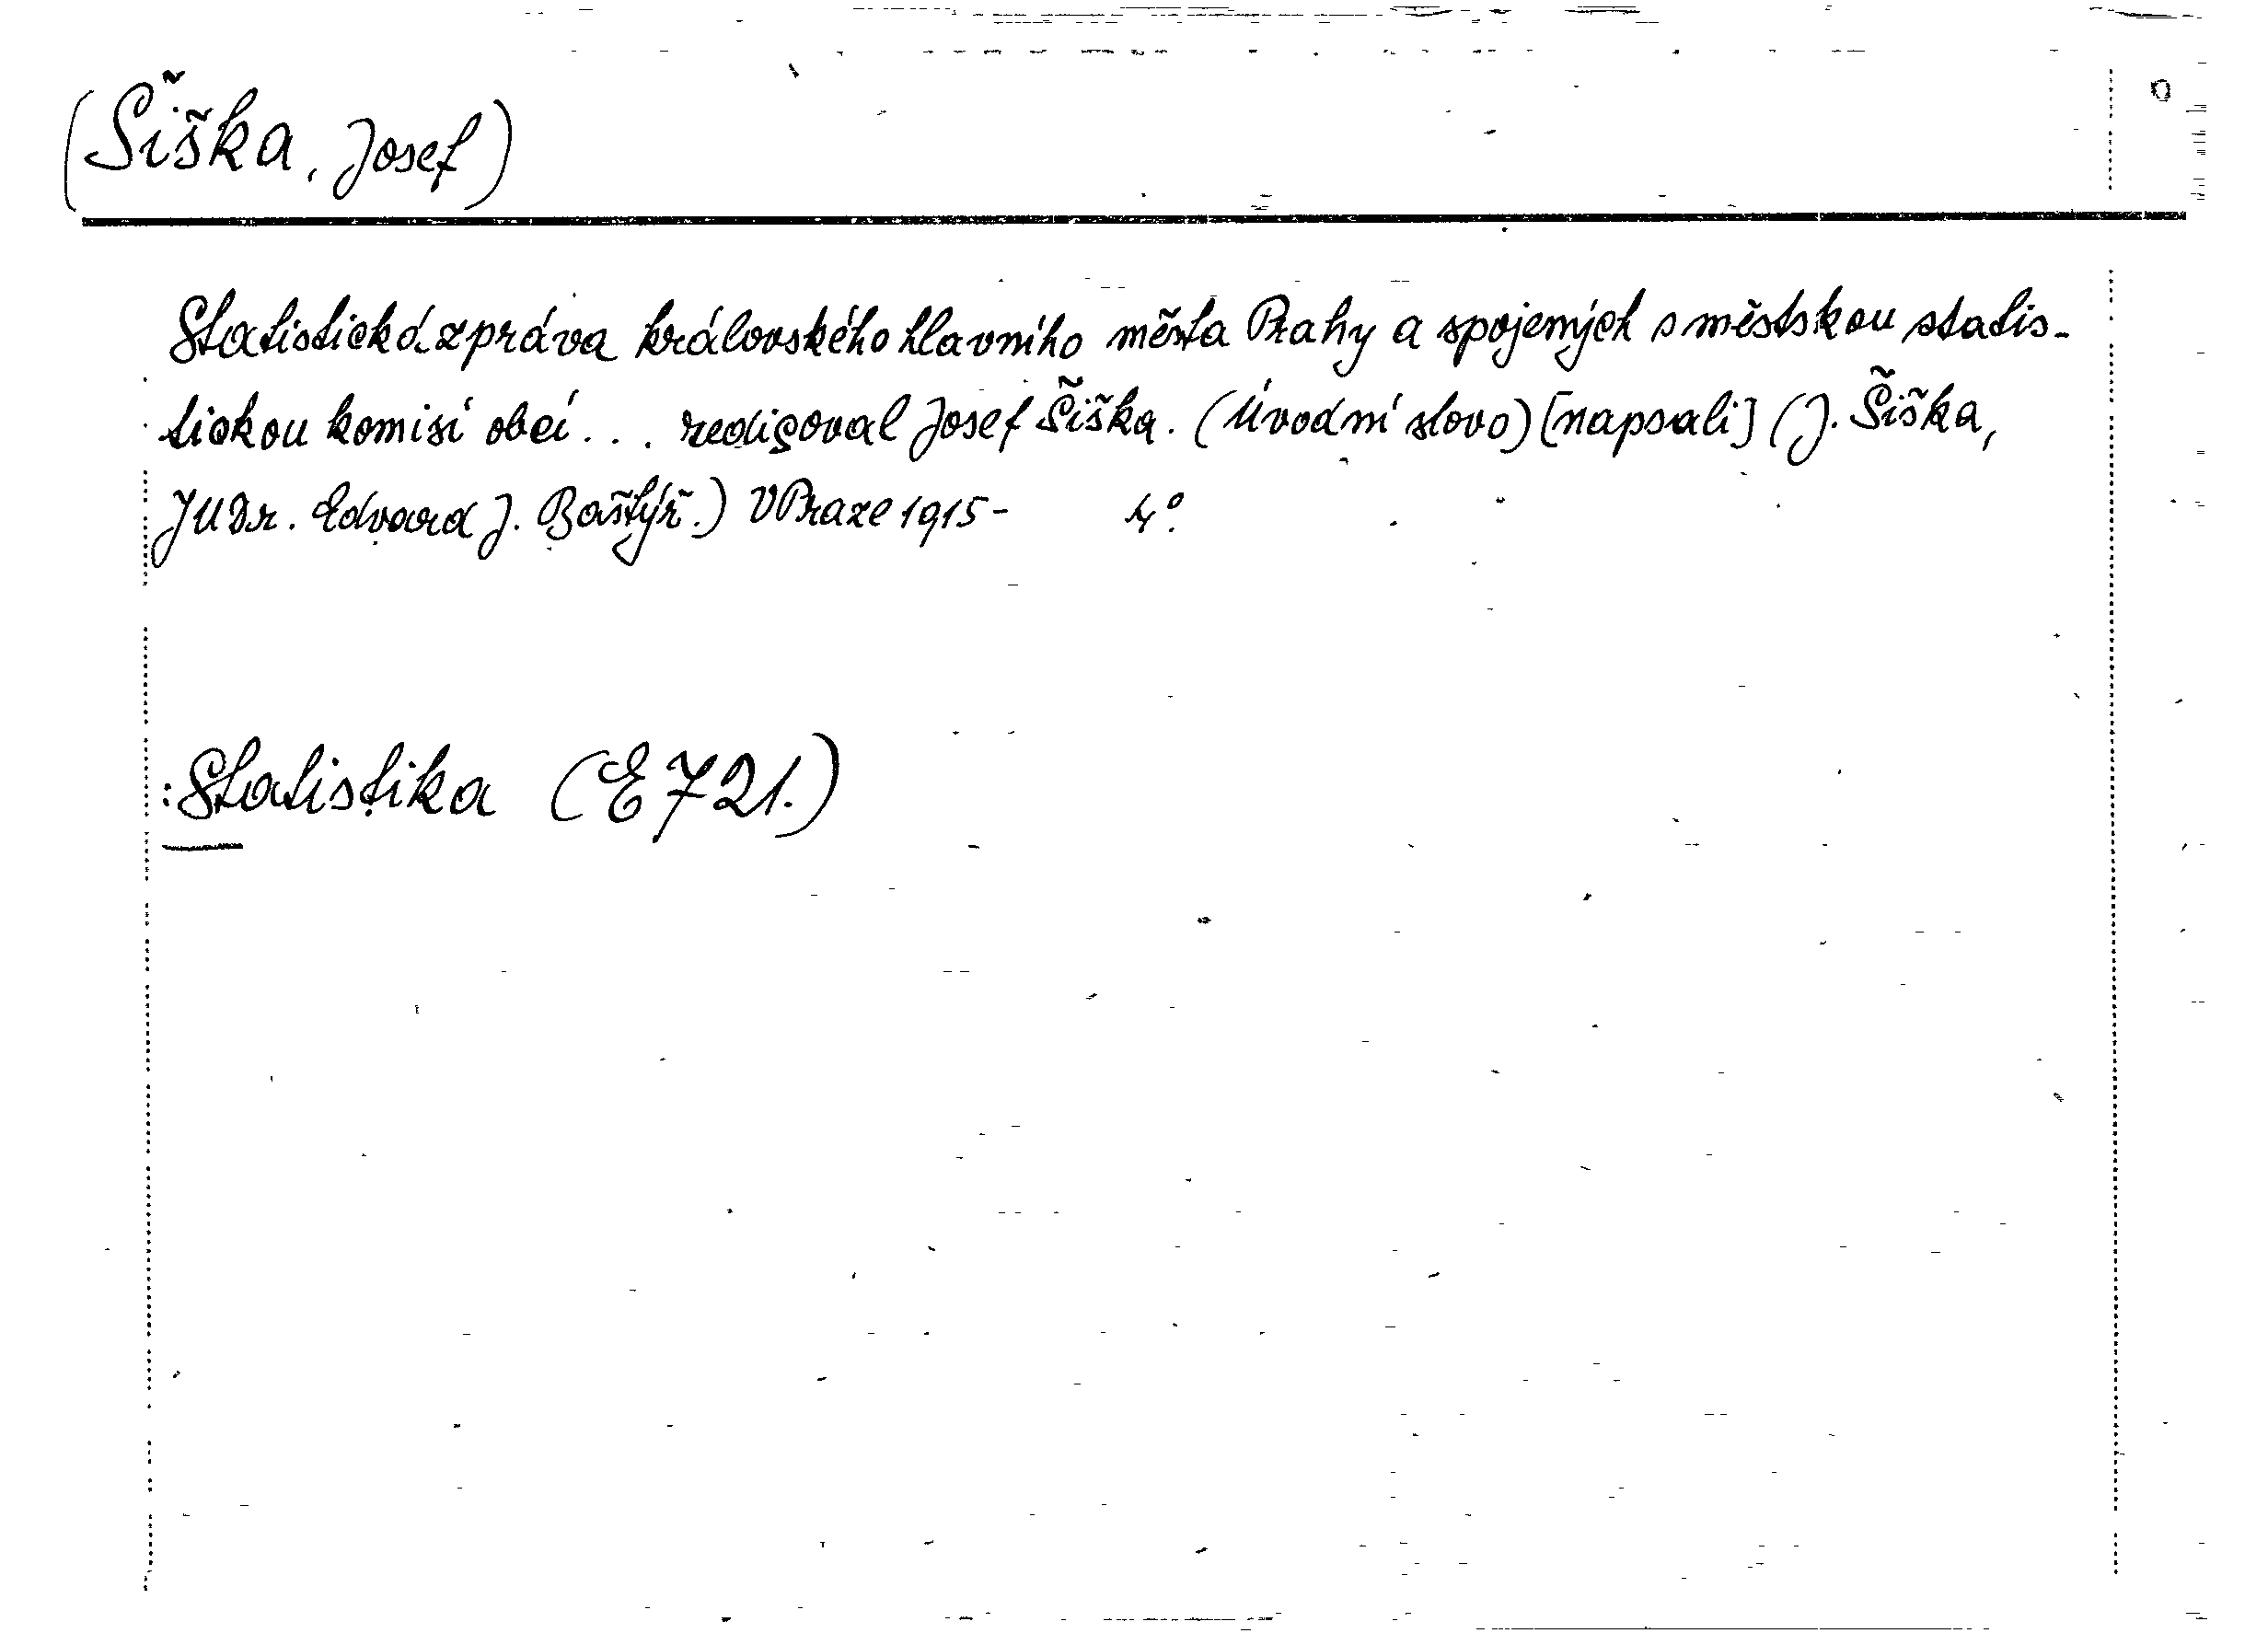 (Šiška, Josef)
Statistická zpráva královského hlavního města Prahy a spojených s městskou statis-
tickou komisí obcí... redigoval Josef Šiška. (Úvodní slovo) [napsali] (J. Šiška,
JUDr. Edvard J. Baštýř.) V Praze 1915- 4°.
:Statistika (E 721.)